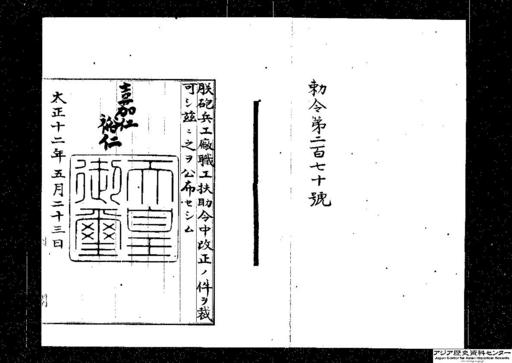 勅令第二百七十號
朕砲兵工廠職工扶助令中改正ノ件ヲ裁
可シ茲ニ之ヲ公布セシム
嘉仁
裕仁
天皇
御璽
大正十二年五月二十三日
アジア歴史資料センター
Japan Center for Asian Historical Records